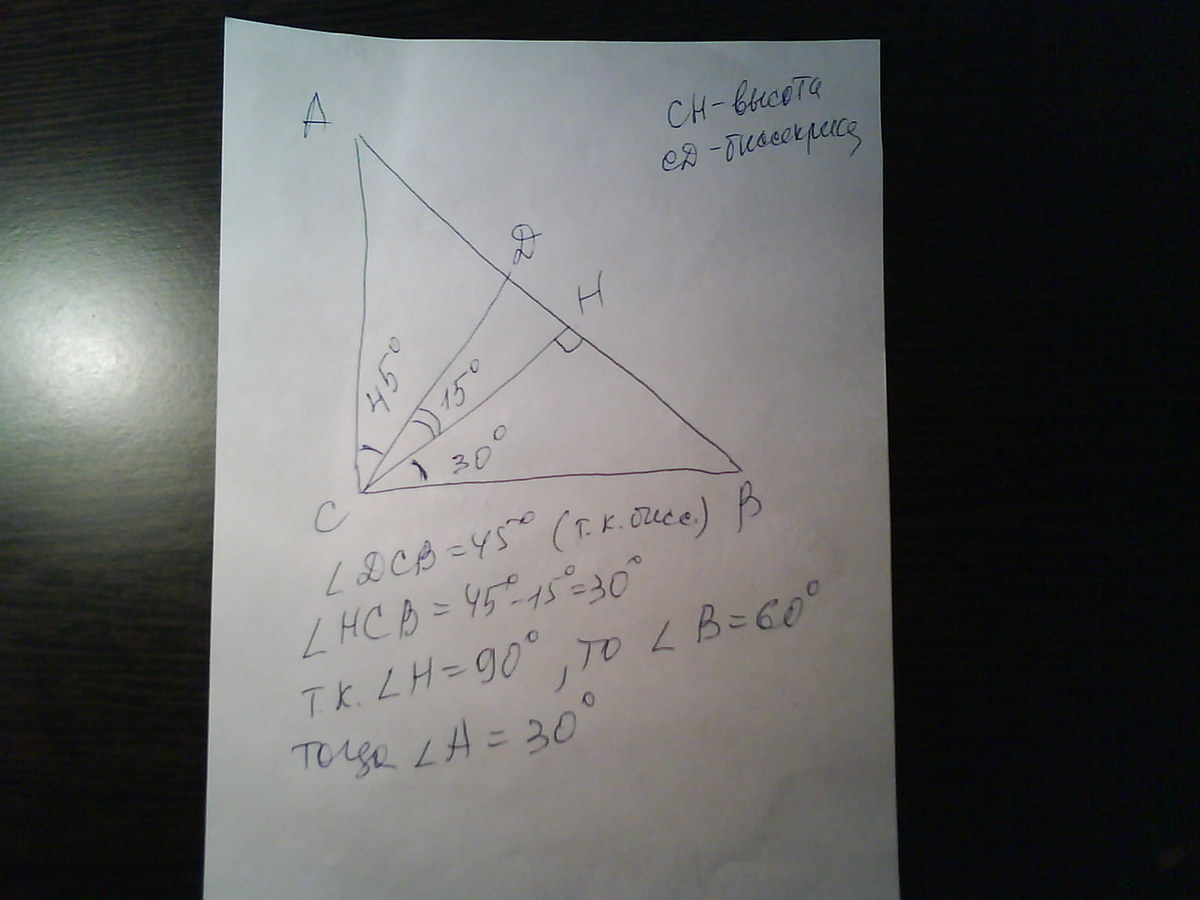 A
CH - высота
СД - биссектриса
Д
H
45°
15°
30°
C
B
∠DCB = 45° (т.к. бисс.)
∠HCB = 45° - 15° = 30°
т.к. ∠H = 90°, то ∠B = 60°
тогда ∠A = 30°